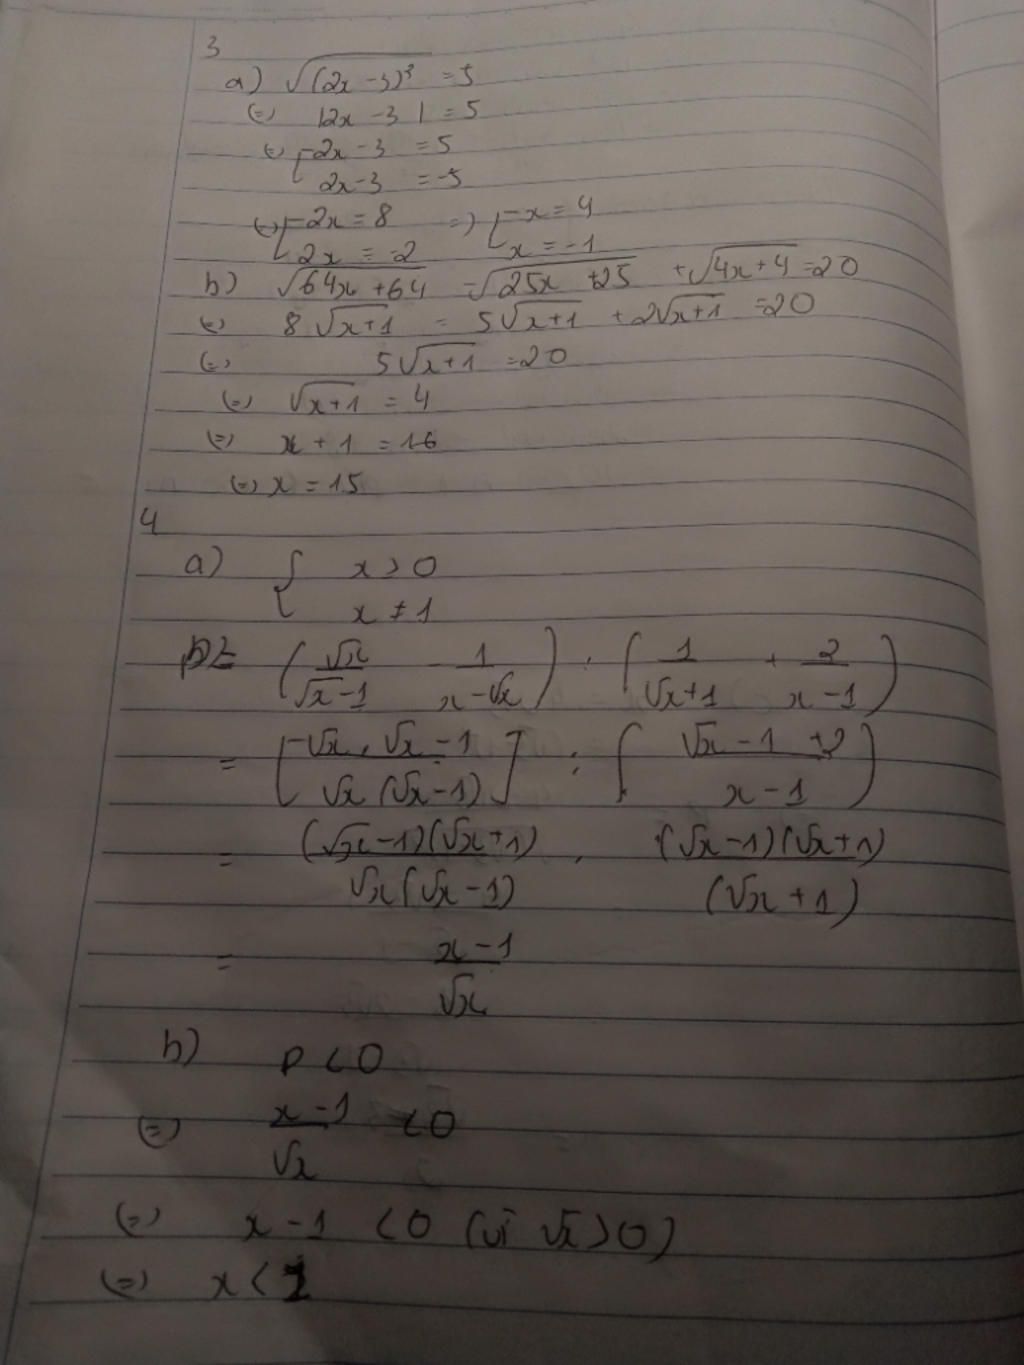 3
a) √(2x - 3)² = 5
(=) |2x - 3| = 5
(=) [ 2x - 3 = 5
2x - 3 = -5
(=) [ 2x = 8 =) [ x = 4
2x = -2 x = -1
b) √64x + 64 - √25x + 25 + √4x + 4 = 20
(=) 8√x+1 - 5√x+1 + 2√x+1 = 20
(=) 5√x+1 = 20
(=) √x+1 = 4
(=) x + 1 = 16
(=) x = 15
4
a) { x > 0
x ≠ 1
P = (√x/(√x - 1) - 1/(x - √x)) : (1/(√x + 1) + 2/(x - 1))
= [(√x . √x - 1)/(√x (√x - 1))] : ((√x - 1 + 2)/(x - 1))
= (√x - 1)(√x + 1)/(√x (√x - 1)) . (√x - 1)(√x + 1)/(√x + 1)
= (x - 1)/√x
b) P < 0
(=) (x - 1)/√x < 0
(=) x - 1 < 0 (vì √x > 0)
(=) x < 1